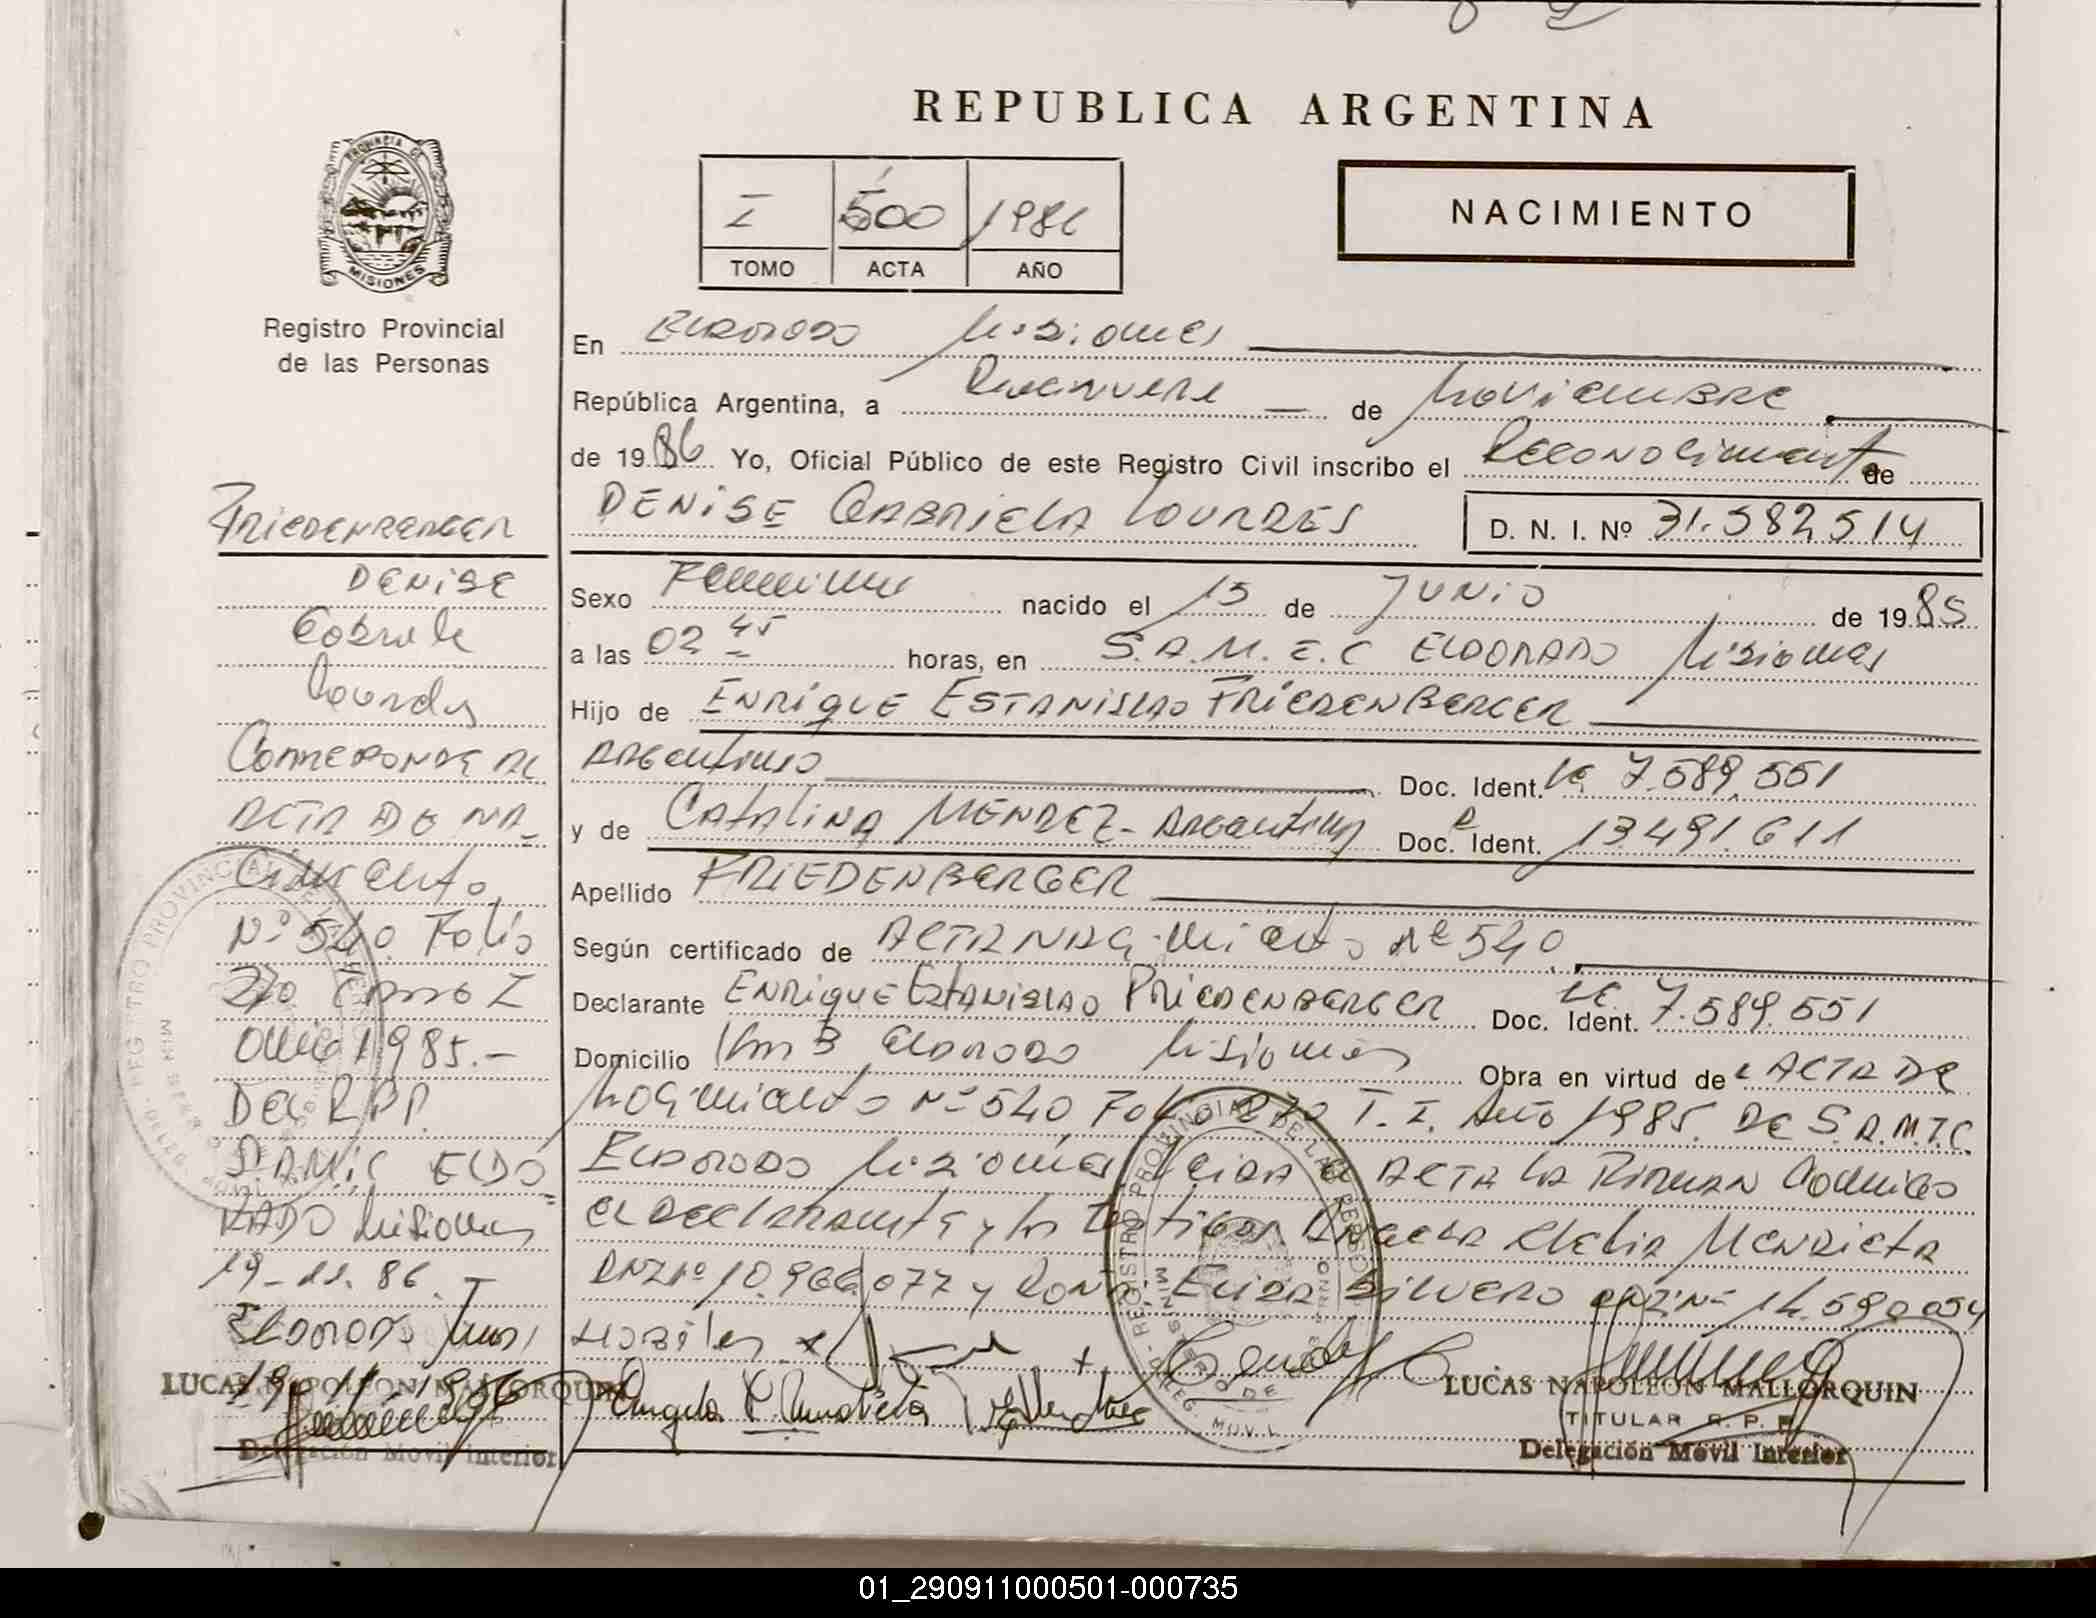 REPUBLICA ARGENTINA
I 500 1986
TOMO ACTA AÑO
NACIMIENTO
PROVINCIA DE
MISIONES
Registro Provincial
de las Personas
FRIEDENBERGER
DENISE
Gabriela
Lourdes
CORRESPONDE AL
ACTA DE NA-
Cimiento
Nº 540. Folio
270 Tomo I
Año 1985.-
DEL R.P.P.
SAMIC ELDO-
RADO Misiones
19-11-86.
ELDORADO
19 11 1986
LUCAS NAPOLEON MALLORQUIN
Delegación Movil Interior
En ELDORADO Misiones
República Argentina, a Diecinueve de Noviembre
de 1986 Yo, Oficial Público de este Registro Civil inscribo el Reconocimiento de
DENISE GABRIELA LOURDES D. N. I. Nº 31.582514
Sexo Femenino nacido el 15 de JUNIO de 1985
a las 02 45 horas, en S.A.M.I.C ELDORADO Misiones
Hijo de ENRIQUE ESTANISLAO FRIEDENBERGER
Argentino Doc. Ident. LE 7.589.551
y de CATALINA MENDEZ- Argentina Doc. Ident. 13491.611
Apellido FRIEDENBERGER
Según certificado de ACTA NACimiento Nº 540
Declarante ENRIQUE ESTANISLAO FRIEDENBERGER Doc. Ident. LE. 7.589.551
Domicilio Km 3 Eldorado Misiones Obra en virtud de ACTA DE
Nacimiento Nº 540, Folio 270 T. I. Año 1985. DE S.A.M.I.C.
ELDORADO Misiones Leida el ACTA LA FIRMAN Conmigo
el Declarante y los Testigos Angela Clelia Mendieta
DNI Nº 10.966.077 y Doña Elida Silvero DNI Nº 14.590.054
Habiles
Angela C Mendieta
LUCAS NAPOLEON MALLORQUIN
TITULAR R. P. P.
Delegación Movil Interior
01_290911000501-000735